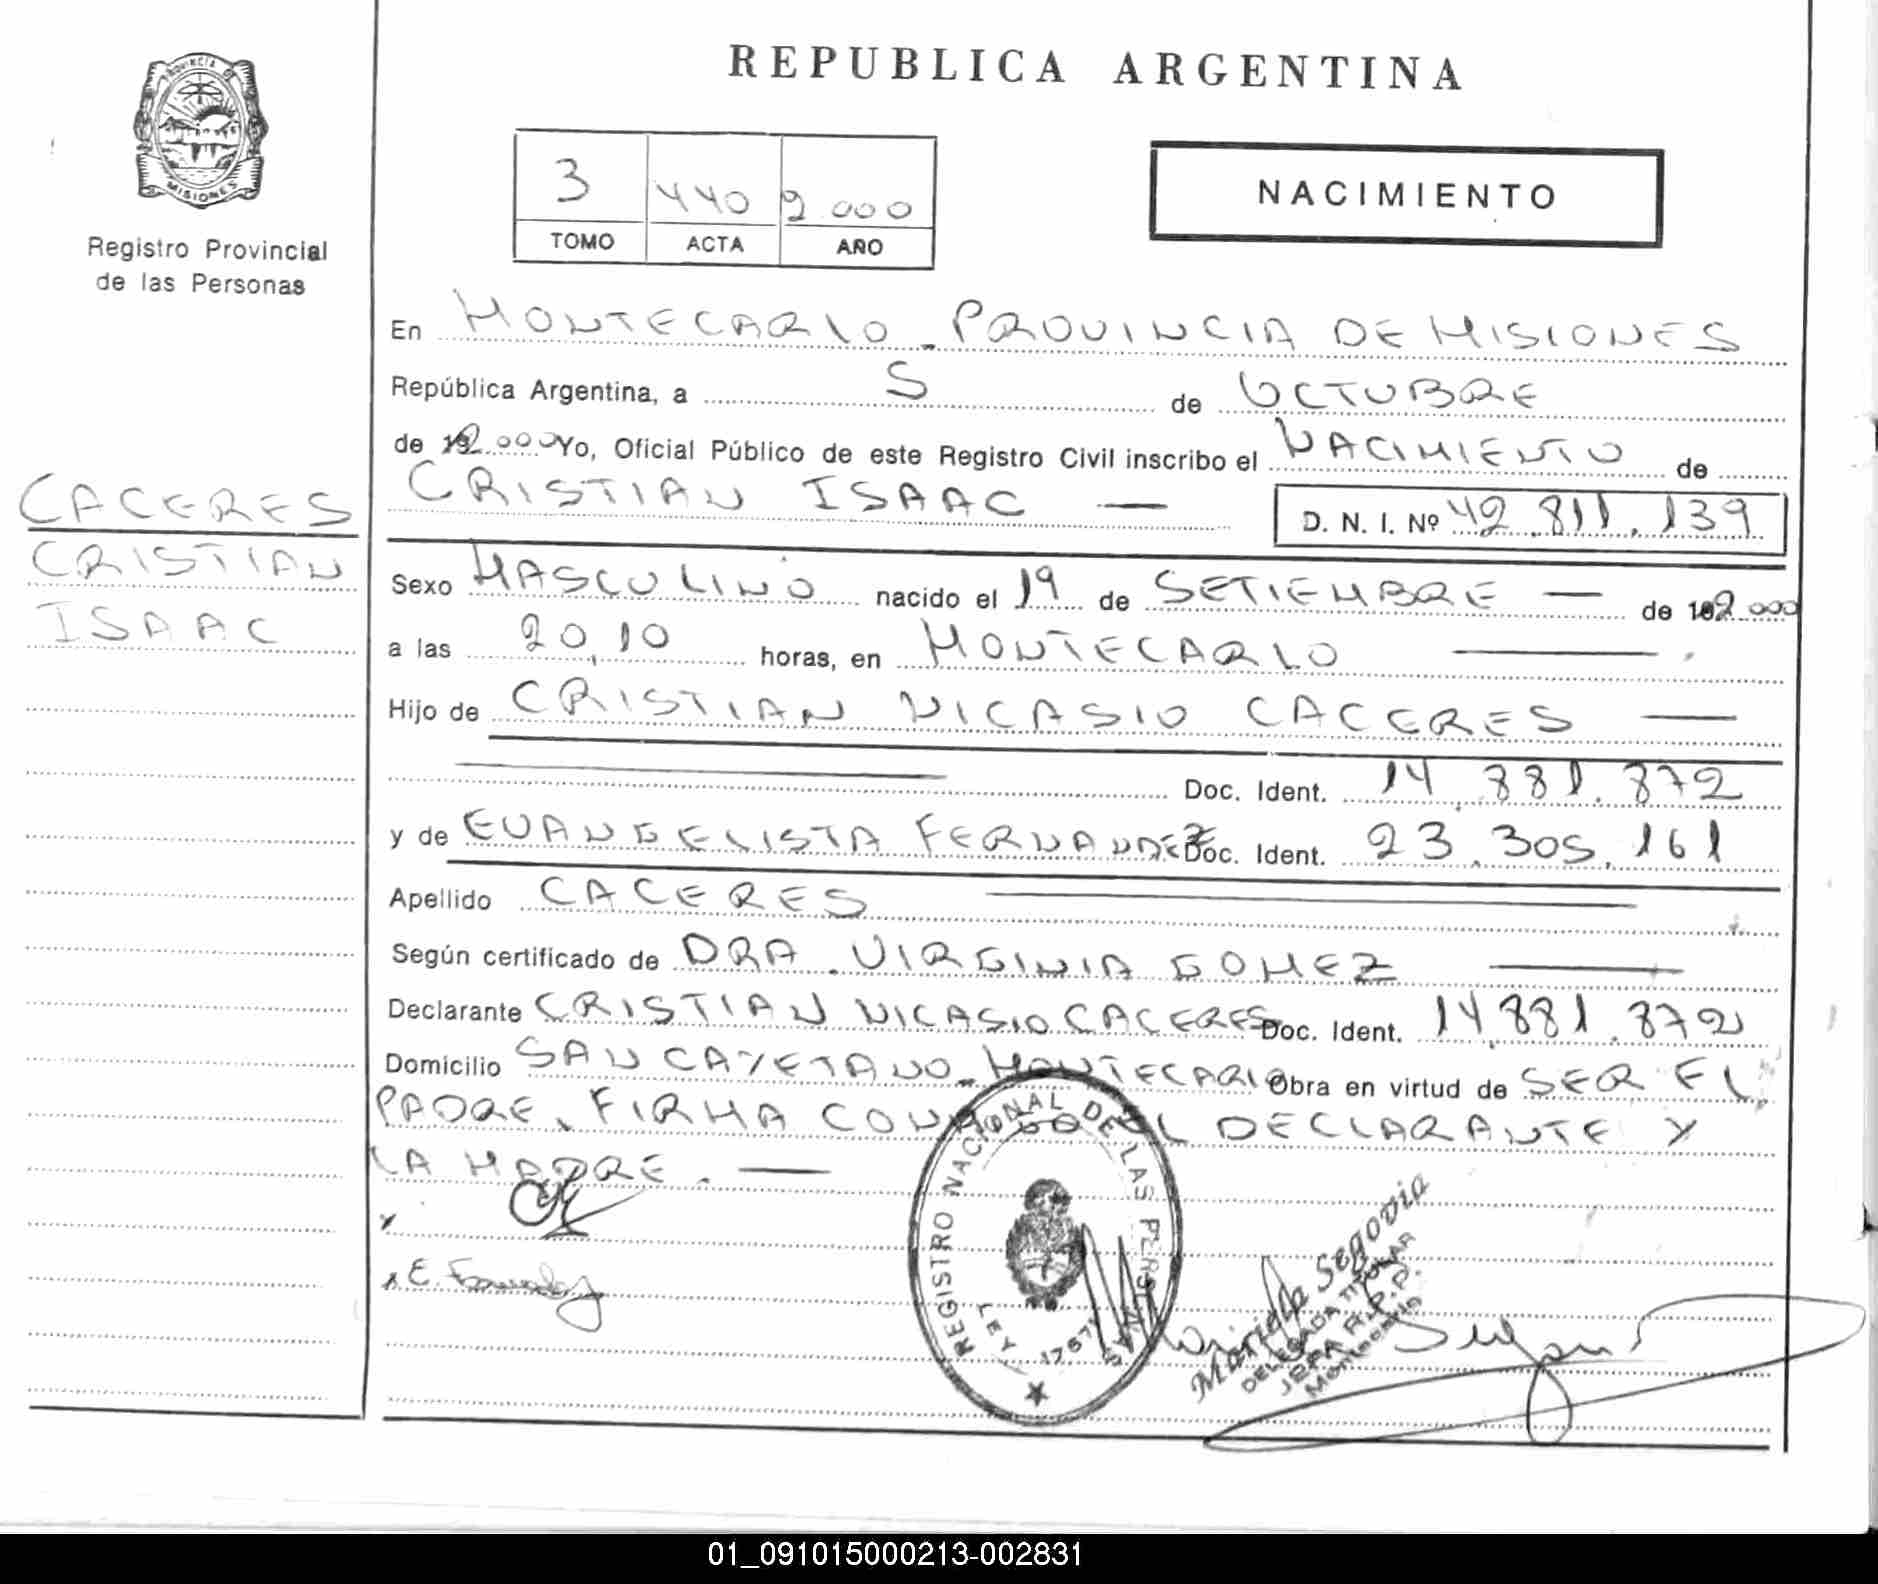 PROVINCIA DE
MISIONES
Registro Provincial
de las Personas
REPUBLICA ARGENTINA
3 440 2.000
TOMO ACTA AÑO
NACIMIENTO
En MONTECARLO - PROVINCIA DE MISIONES
República Argentina, a 5 de OCTUBRE
de 2.000 Yo, Oficial Público de este Registro Civil inscribo el NACIMIENTO de
CRISTIAN ISAAC — D. N. I. Nº 42.811.139
CACERES
CRISTIAN
ISAAC
Sexo MASCULINO nacido el 19 de SETIEMBRE — de 2.000
a las 20,10 horas, en MONTECARLO —
Hijo de CRISTIAN NICASIO CACERES —
Doc. Ident. 14.881.872
y de EVANGELISTA FERNANDEZ Doc. Ident. 23.305.161
Apellido CACERES —
Según certificado de DRA. VIRGINIA GOMEZ —
Declarante CRISTIAN NICASIO CACERES Doc. Ident. 14.881.872
Domicilio SAN CAYETANO - MONTECARLO Obra en virtud de SER EL
PADRE, FIRMA CONMIGO EL DECLARANTE Y
LA MADRE. —
x
x E. Fernandez
REGISTRO NACIONAL DE LAS PERSONAS
LEY 17671
Mariela Segovia
DELEGADA TITULAR
JEFA R.P.P.
Montecarlo
01_091015000213-002831